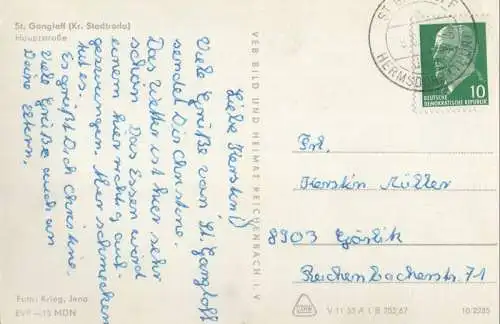 St. Gangloff (Kr. Stadtroda)
Hauptstraße
Liebe Kerstin!
Viele Grüße von St. Gangloff
sendet Dir Christine.
Das Wetter ist hier sehr
schön. Das Essen wird
einem hier richtig auf-
gezwungen. Aber schmecken
tut es.
Es grüßt Dich Christine.
Viele Grüße auch an
Deine Eltern.
Foto: Krieg, Jena
EVP –,15 MDN
VEB BILD UND HEIMAT REICHENBACH I. V
ST. GANGLOFF
HERMSDORF
10
DEUTSCHE
DEMOKRATISCHE REPUBLIK
Frl.
Kerstin Müller
8903 Görlitz
Reichenbacherstr. 71
V 11 55 A 1 B 702/67
10/2285